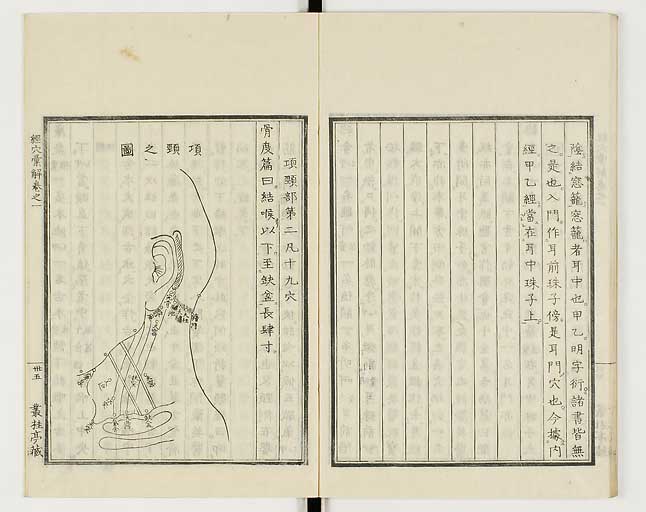 陰結窓籠窓籠者耳中也甲乙明字衍諸書皆無
之是也入門作耳前珠子傍是耳門穴也今據内
經甲乙經當在耳中珠子上
項頸部第二凡十九穴
骨度篇曰結喉以下至缺盆長肆寸
項頸之圖
經穴彙解卷之一
卅五
叢桂亭藏